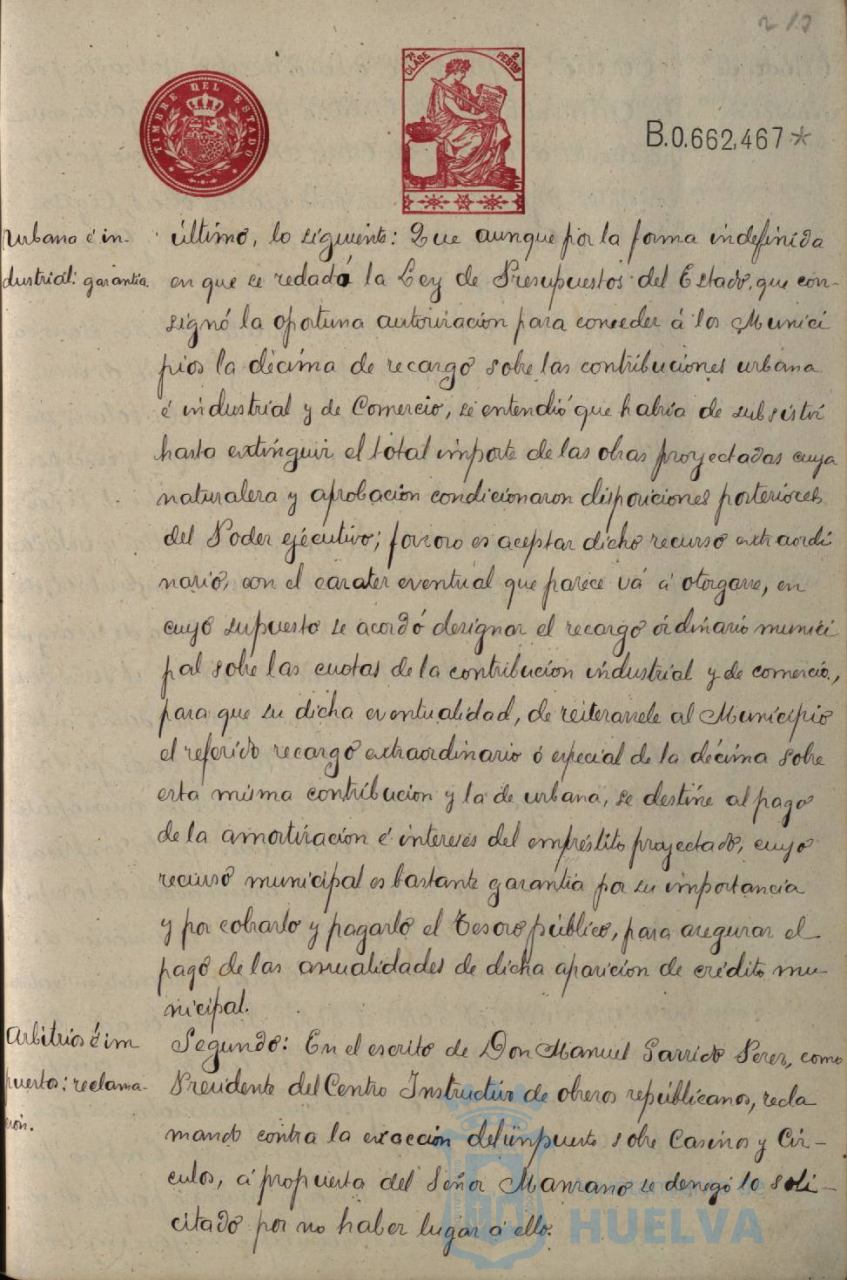 213
TIMBRE DEL ESTADO
7ª CLASE
2 PESETAS
B.0.662,467*
Urbano é in-
dustrial: garantía.
último, lo siguiente: Que aunque por la forma indefinida
en que se redactó la Ley de Presupuestos del Estado, que con-
signó la oportuna autorización para conceder á los Munici
pios la décima de recargo sobre las contribuciones urbana
é industrial y de Comercio, se entendió que habría de subsistir
hasta extinguir el total importe de las obras proyectadas cuya
naturaleza y aprobación condicionaron disposiciones posteriores
del Poder ejécutivo; forzoso es aceptar dicho recurso extraordi
nario, con el carater eventual que parece vá á otorgarse, en
cuyo supuesto se acordó designar el recargo ordinario munici
pal sobre las cuotas de la contribución industrial y de comercio,
para que su dicha eventualidad, de reiterarsele al Municipio
el referido recargo extraordinario ó especial de la décima sobre
esta misma contribución y la de urbana, se destine al pago
de la amortización é intereses del empréstito proyectado, cuyo
recurso municipal es bastante garantía por su importancia
y por cobrarlo y pagarlo el Tesoro público, para asegurar el
pago de las anualidades de dicha aparición de crédito mu-
nicipal.
Arbitrios é im
puestos: reclama-
ción.
Segundo: En el escrito de Don Manuel Garrido Perez, como
Presidente del Centro Instructivo de obreros republicanos, recla
mando contra la exacción del impuesto sobre Casinos y Cír-
culos, á propuesta del Señor Manzano se denegó lo soli-
citado por no haber lugar á ello.
HUELVA